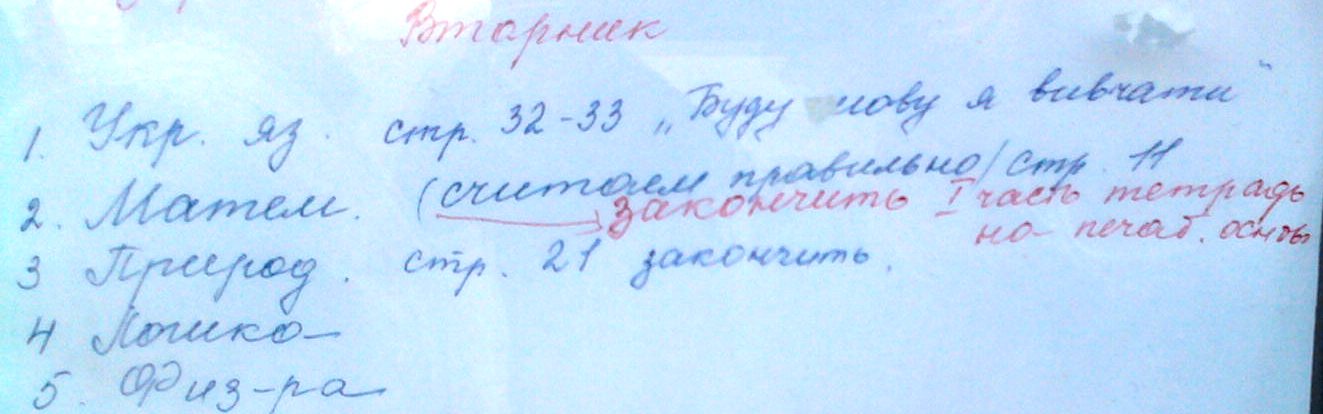 Вторник
1. Укр. яз. стр. 32-33 „Буду мову я вивчати"
2. Матем. (считаем правильно) стр. 11
закончить I часть тетрадь
на печат. основы
3 Природ. стр. 21 закончить.
4 Логика
5. Физ-ра